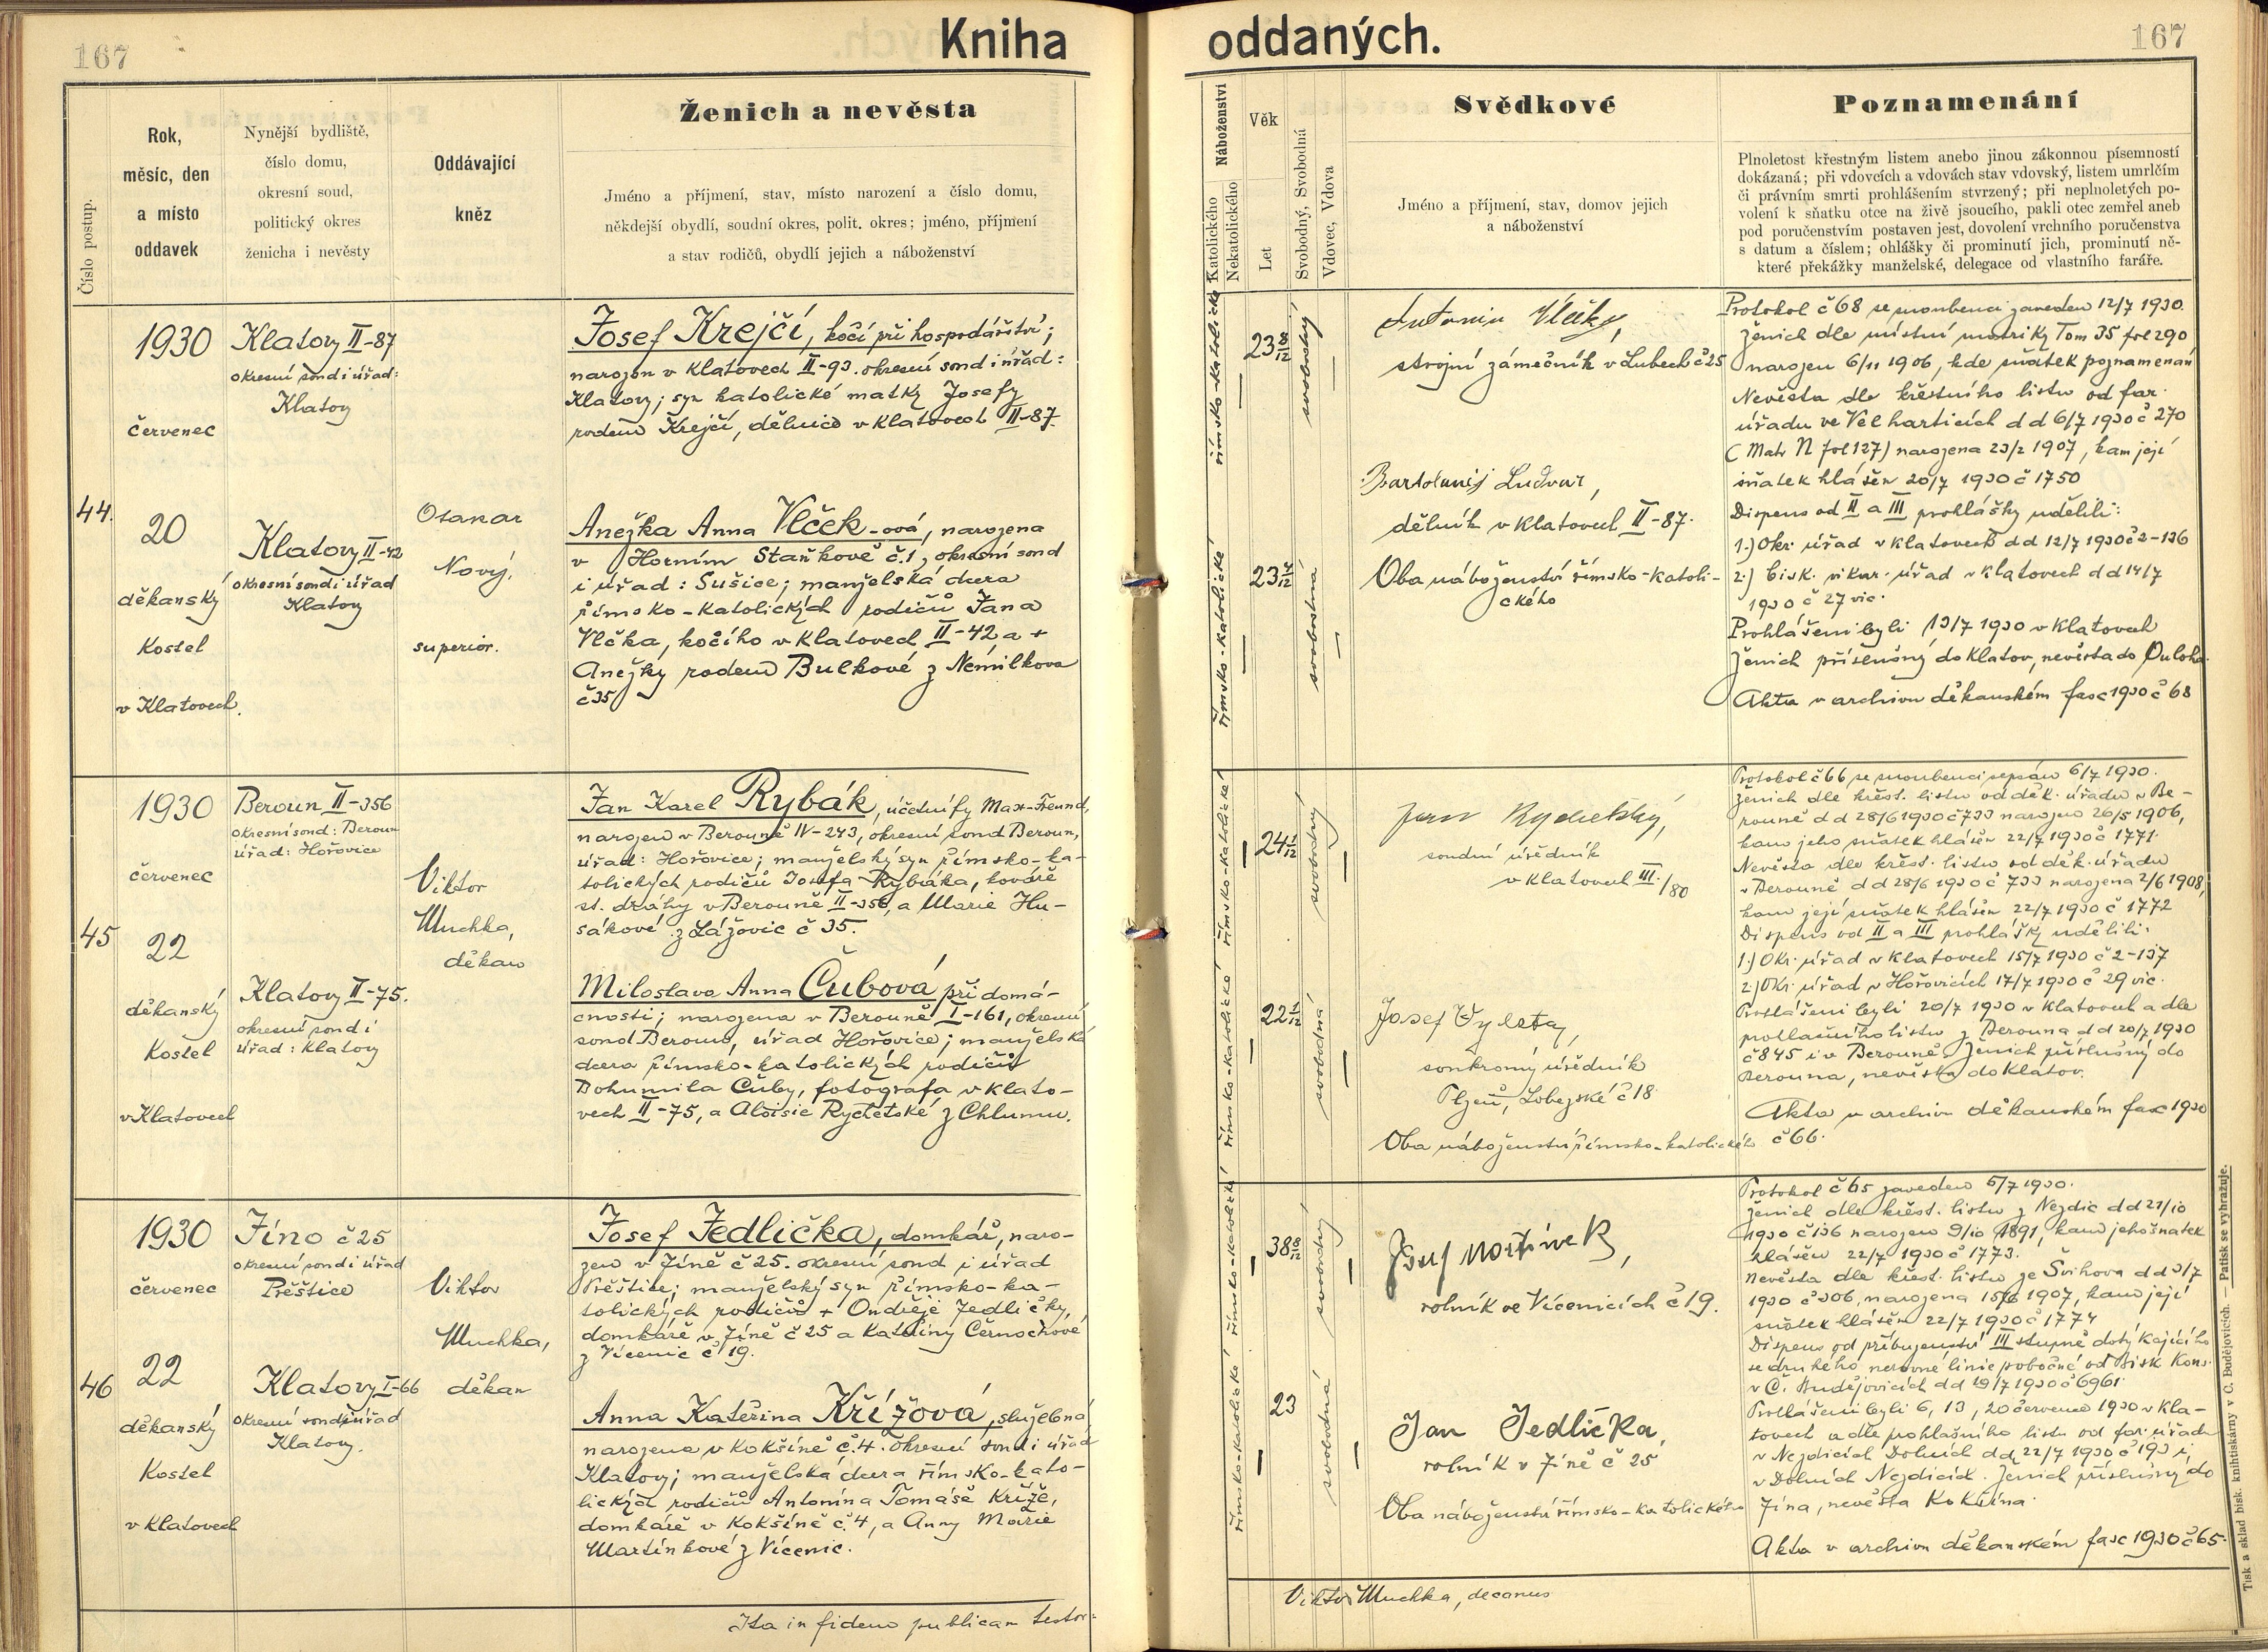 167
Kniha
Číslo postup.
Rok,
měsíc, den
a místo
oddavek
Nynější bydliště,
číslo domu,
okresní soud,
politický okres
ženicha i nevěsty
Oddávající
kněz
Ženich a nevěsta
Jméno a příjmení, stav, místo narození a číslo domu,
někdejší obydlí, soudní okres, polit. okres; jméno, příjmení
a stav rodičů, obydlí jejich a náboženství
44.
1930
červenec
20
děkanský
Kostel
v Klatovech.
Klatovy II-87
okresní soud i úřad:
Klatovy
Klatovy II-42
okresní soud i úřad
Klatovy
Otakar
Nový,
superior.
Josef Krejčí, kočí při hospodářství;
narozen v Klatovech II-93. okresní soud i úřad:
Klatovy; syn katolické matky Josefy
rodem Krejčí, dělnice v Klatovech II-87.
Anežka Anna Vlček-ová, narozena
v Horním Staňkově č.1, okresní soud
i úřad: Sušice; manželská dcera
římsko-katolických rodičů Jana
Vlčka, kočího v Klatovech II-42 a +
Anežky rodem Bulkové z Nemilkova
č 35
45
1930
červenec
22
děkanský
Kostel
v Klatovech
Beroun II-356
okresní soud: Beroun
úřad: Hořovice
Klatovy II-75.
okresní soud i
úřad: Klatovy
Viktor
Muchka,
děkan
Jan Karel Rybák, účetní fy Max-Freund,
narozen v Berouně IV-243, okresní soud Beroun,
úřad: Hořovice; manželský syn římsko-ka-
tolických rodičů Josefa Rybáka, kováře
st. dráhy v Berouně II-356, a Marie Hu-
sákové z Lážovic č 35.
Miloslava Anna Čubová při domá-
cnosti; narozena v Berouně I-161, okresní
soud Beroun, úřad Hořovice; manželská
dcera římsko-katolických rodičů
Bohumila Čuby, fotografa v Klato-
vech II-75, a Aloisie Rychetské z Chlumu.
46
1930
červenec
22
děkanský
Kostel
v Klatovech
Jíno č 25
okresní soud i úřad
Přeštice
Klatovy I-66
okresní soud i úřad
Klatovy.
Viktor
Muchka,
děkan
Josef Jedlička, domkář, naro-
zen v Jíně č 25. okresní soud i úřad
Přeštice; manželský syn římsko-ka-
tolických rodičů + Ondřeje Jedličky,
domkáře v Jíně č 25 a Kateřiny Černochové
z Vícenic č 19.
Anna Kateřina Křížová, služebná,
narozena v Kokšíně č.4. okresní soud i úřad
Klatovy; manželská dcera římsko-kato-
lických rodičů Antonína Tomáše Kříže,
domkáře v Kokšíně č.4, a Anny Marie
Martínkové z Vícenic.
Ita in fidem publicam testor:
oddaných.
167
Náboženství
Katolického
Nekatolického
Věk
Let
Svobodný, Svobodná
Vdovec, Vdova
Svědkové
Jméno a příjmení, stav, domov jejich
a náboženství
Poznamenání
Plnoletost křestným listem anebo jinou zákonnou písemností
dokázaná; při vdovcích a vdovách stav vdovský, listem umrlčím
či právním smrti prohlášením stvrzený; při neplnoletých po-
volení k sňatku otce na živě jsoucího, pakli otec zemřel aneb
pod poručenstvím postaven jest, dovolení vrchního poručenstva
s datum a číslem; ohlášky či prominutí jich, prominutí ně-
které překážky manželské, delegace od vlastního faráře.
římsko-katolické
23 8/12
svobodný
římsko-katolické
23
svobodná
Antonín Vlčky,
strojní zámečník v Lubech č 25
Bartoloměj Ludvar,
dělník v Klatovech II-87.
Oba náboženství římsko-katoli-
ckého
Protokol č 68 se snoubenci zaveden 12/7 1930.
Ženich dle místní matriky Tom 35 fol 290
narozen 6/11 1906, kde sňatek poznamenán
Nevěsta dle křestního listu od far.
úřadu ve Velharticích d d 6/7 1930 č 270
(Matr N fol 127) narozena 23/2 1907, kam její
sňatek hlášen 20/7 1930 č 1750
Dispens od II a III prohlášky udělili:
1.) Okr. úřad v Klatovech dd 12/7 1930 č 2-136
2.) bisk. vikar. úřad v Klatovech d d 14/7
1930 č 27 vic.
Prohlášeni byli 13/7 1930 v Klatovech
Ženich příslušný do Klatov, nevěsta do
Akta v archivu děkanském fasc 1930 č 68
římsko-katolické
24 1/12
svobodný
římsko-katolické
22 1/12
svobodná
Jan Rychetský,
soudní úředník
v Klatovech III./80
Josef Vyleta,
soukromý úředník
Plzeň, Lobezské č 18
Oba náboženství římsko-katolického
Protokol č 66 se snoubenci sepsán 6/7 1930.
Ženich dle křest. listu od děk. úřadu v Be-
rouně d d 28/6 1930 č 733 narozen 26/5 1906,
kam jeho sňatek hlášen 22/7 1930 č 1771.
Nevěsta dle křest. listu od děk. úřadu
v Berouně d d 28/6 1930 č 733 narozena 2/6 1908,
kam její sňatek hlášen 22/7 1930 č 1772
Dispens od II a III prohlášky udělili:
1.) Okr. úřad v Klatovech 15/7 1930 č 2-137
2.) Okr. úřad v Hořovicích 17/7 1930 č 29 vic.
Prohlášeni byli 20/7 1930 v Klatovech a dle
prohlašního listu z Berouna d d 20/7 1930
č 845 i v Berouně. Ženich příslušný do
Berouna, nevěsta do Klatov.
Akta v archivu děkanském fasc 1930
č 66.
římsko-katolické
38
svobodný
římsko-katolické
23
svobodná
Josef Martínek,
rolník ve Vícenicích č 19.
Jan Jedlička,
rolník v Jíně č 25
Oba náboženství římsko-katolického
Protokol č 65 zaveden 6/7 1930.
Ženich dle křest. listu z Nezdic d d 21/10
1930 č 136 narozen 9/10 1891, kam jeho sňatek
hlášen 22/7 1930 č 1773.
Nevěsta dle křest. listu ze Švihova d d 3/7
1930 č 306, narozena 15/6 1907, kam její
sňatek hlášen 22/7 1930 č 1774
Dispens od příbuzenství III stupně dotýkajícího
se druhého nerovné linie pobočné od Bisk Kons.
v Č. Budějovicích dd 19/7 1930 č 6961.
Prohlášeni byli 6, 13, 20 července 1930 v Kla-
tovech a dle prohlašního listu od far. úřadu
v Nezdicích Dolních dd 22/7 1930 č 193 i
v Dolních Nezdicích. Ženich příslušný do
Jína, nevěsta Kokšína.
Akta v archivu děkanském fasc 1930 č 65.
Viktor Muchka, decanus
Tisk a sklad bisk. knihtiskárny v Č. Budějovicích. — Patisk se vyhražuje.